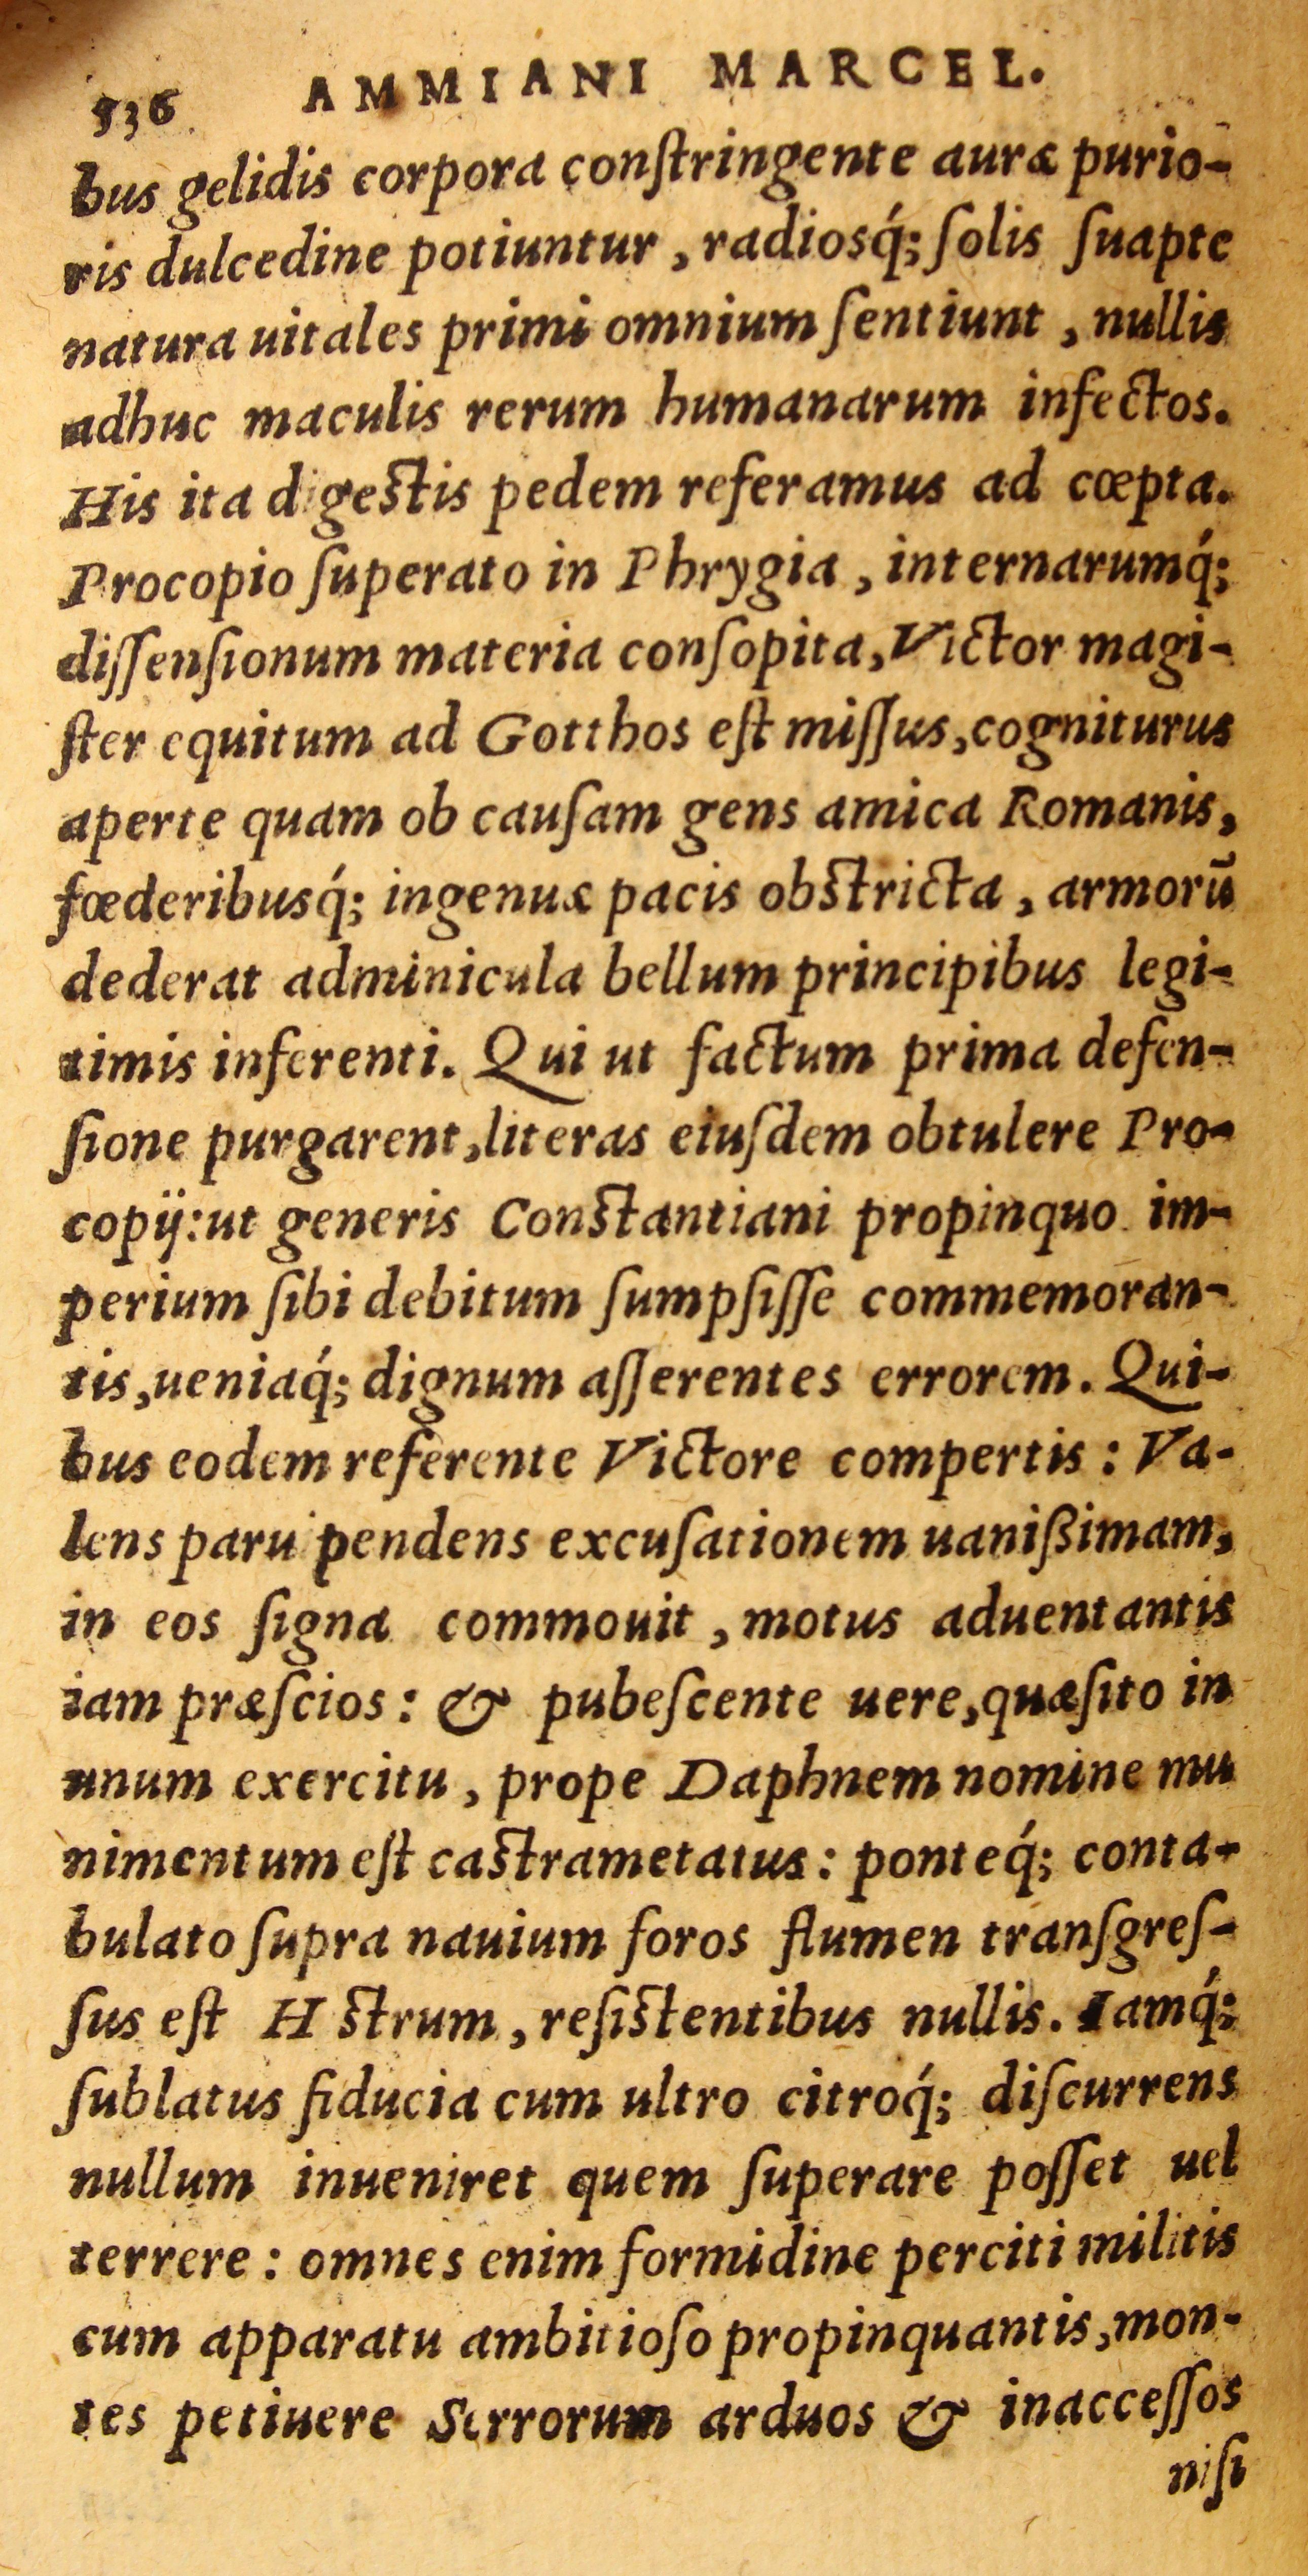 536 AMMIANI MARCEL.
bus gelidis corpora conſtringente auræ purio-
ris dulcedine potiuntur, radiosq́; ſolis ſuapte
natura uitales primi omnium ſentiunt, nullis
adhuc maculis rerum humanarum infectos.
His ita digestis pedem referamus ad cœpta.
Procopio ſuperato in Phrygia, internarumq́;
diſſenſionum materia conſopita, Victor magi-
ſter equitum ad Gotthos eſt miſſus, cogniturus
aperte quam ob cauſam gens amica Romanis,
fœderibusq́; ingenuæ pacis obstricta, armorū
dederat adminicula bellum principibus legi-
timis inferenti. Qui ut factum prima defen-
ſione purgarent, literas eiuſdem obtulere Pro-
copij: ut generis Constantiani propinquo im-
perium ſibi debitum ſumpſiſſe commemoran-
tis, ueniaq́; dignum aſſerentes errorem. Qui-
bus eodem referente Victore compertis: Va-
lens paru pendens excuſationem uanißimam,
in eos ſigna commouit, motus aduentantis
iam præſcios: & pubeſcente uere, quæſito in
unum exercitu, prope Daphnem nomine mu
nimentum eſt castrametatus: ponteq́; conta-
bulato ſupra nauium foros flumen tranſgreſ-
ſus eſt H strum, reſistentibus nullis. Iamq́;
ſublatus fiducia cum ultro citroq́; diſcurrens
nullum inueniret quem ſuperare poſſet uel
terrere: omnes enim formidine perciti militis
cum apparatu ambitioſo propinquantis, mon-
tes petiuere Serrorum arduos & inacceſſos
niſi